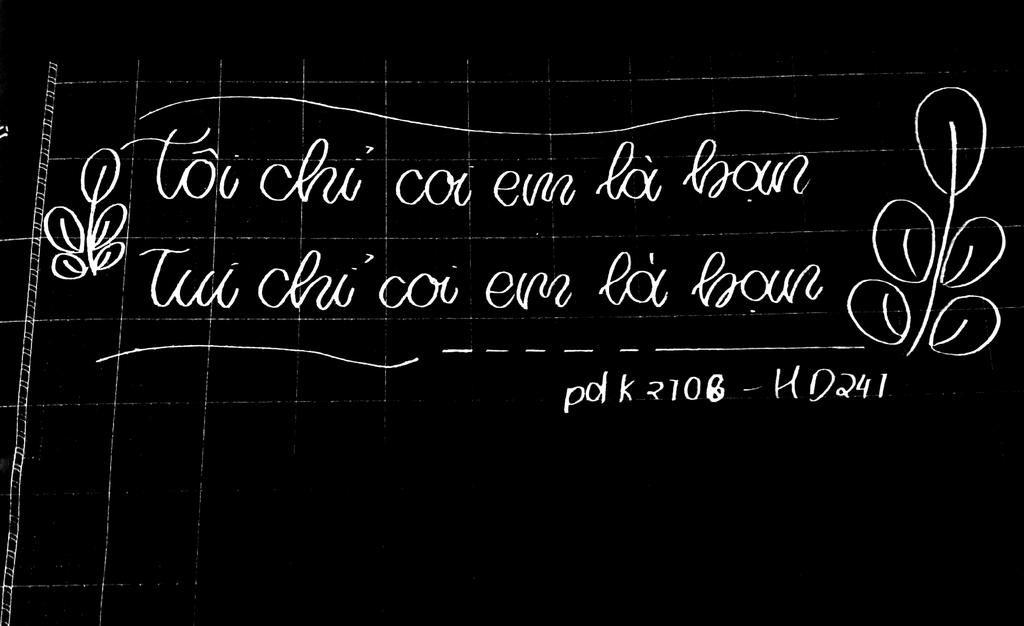 Tôi chỉ coi em là bạn
Tui chỉ coi em là bạn
pdk2106 - HD241